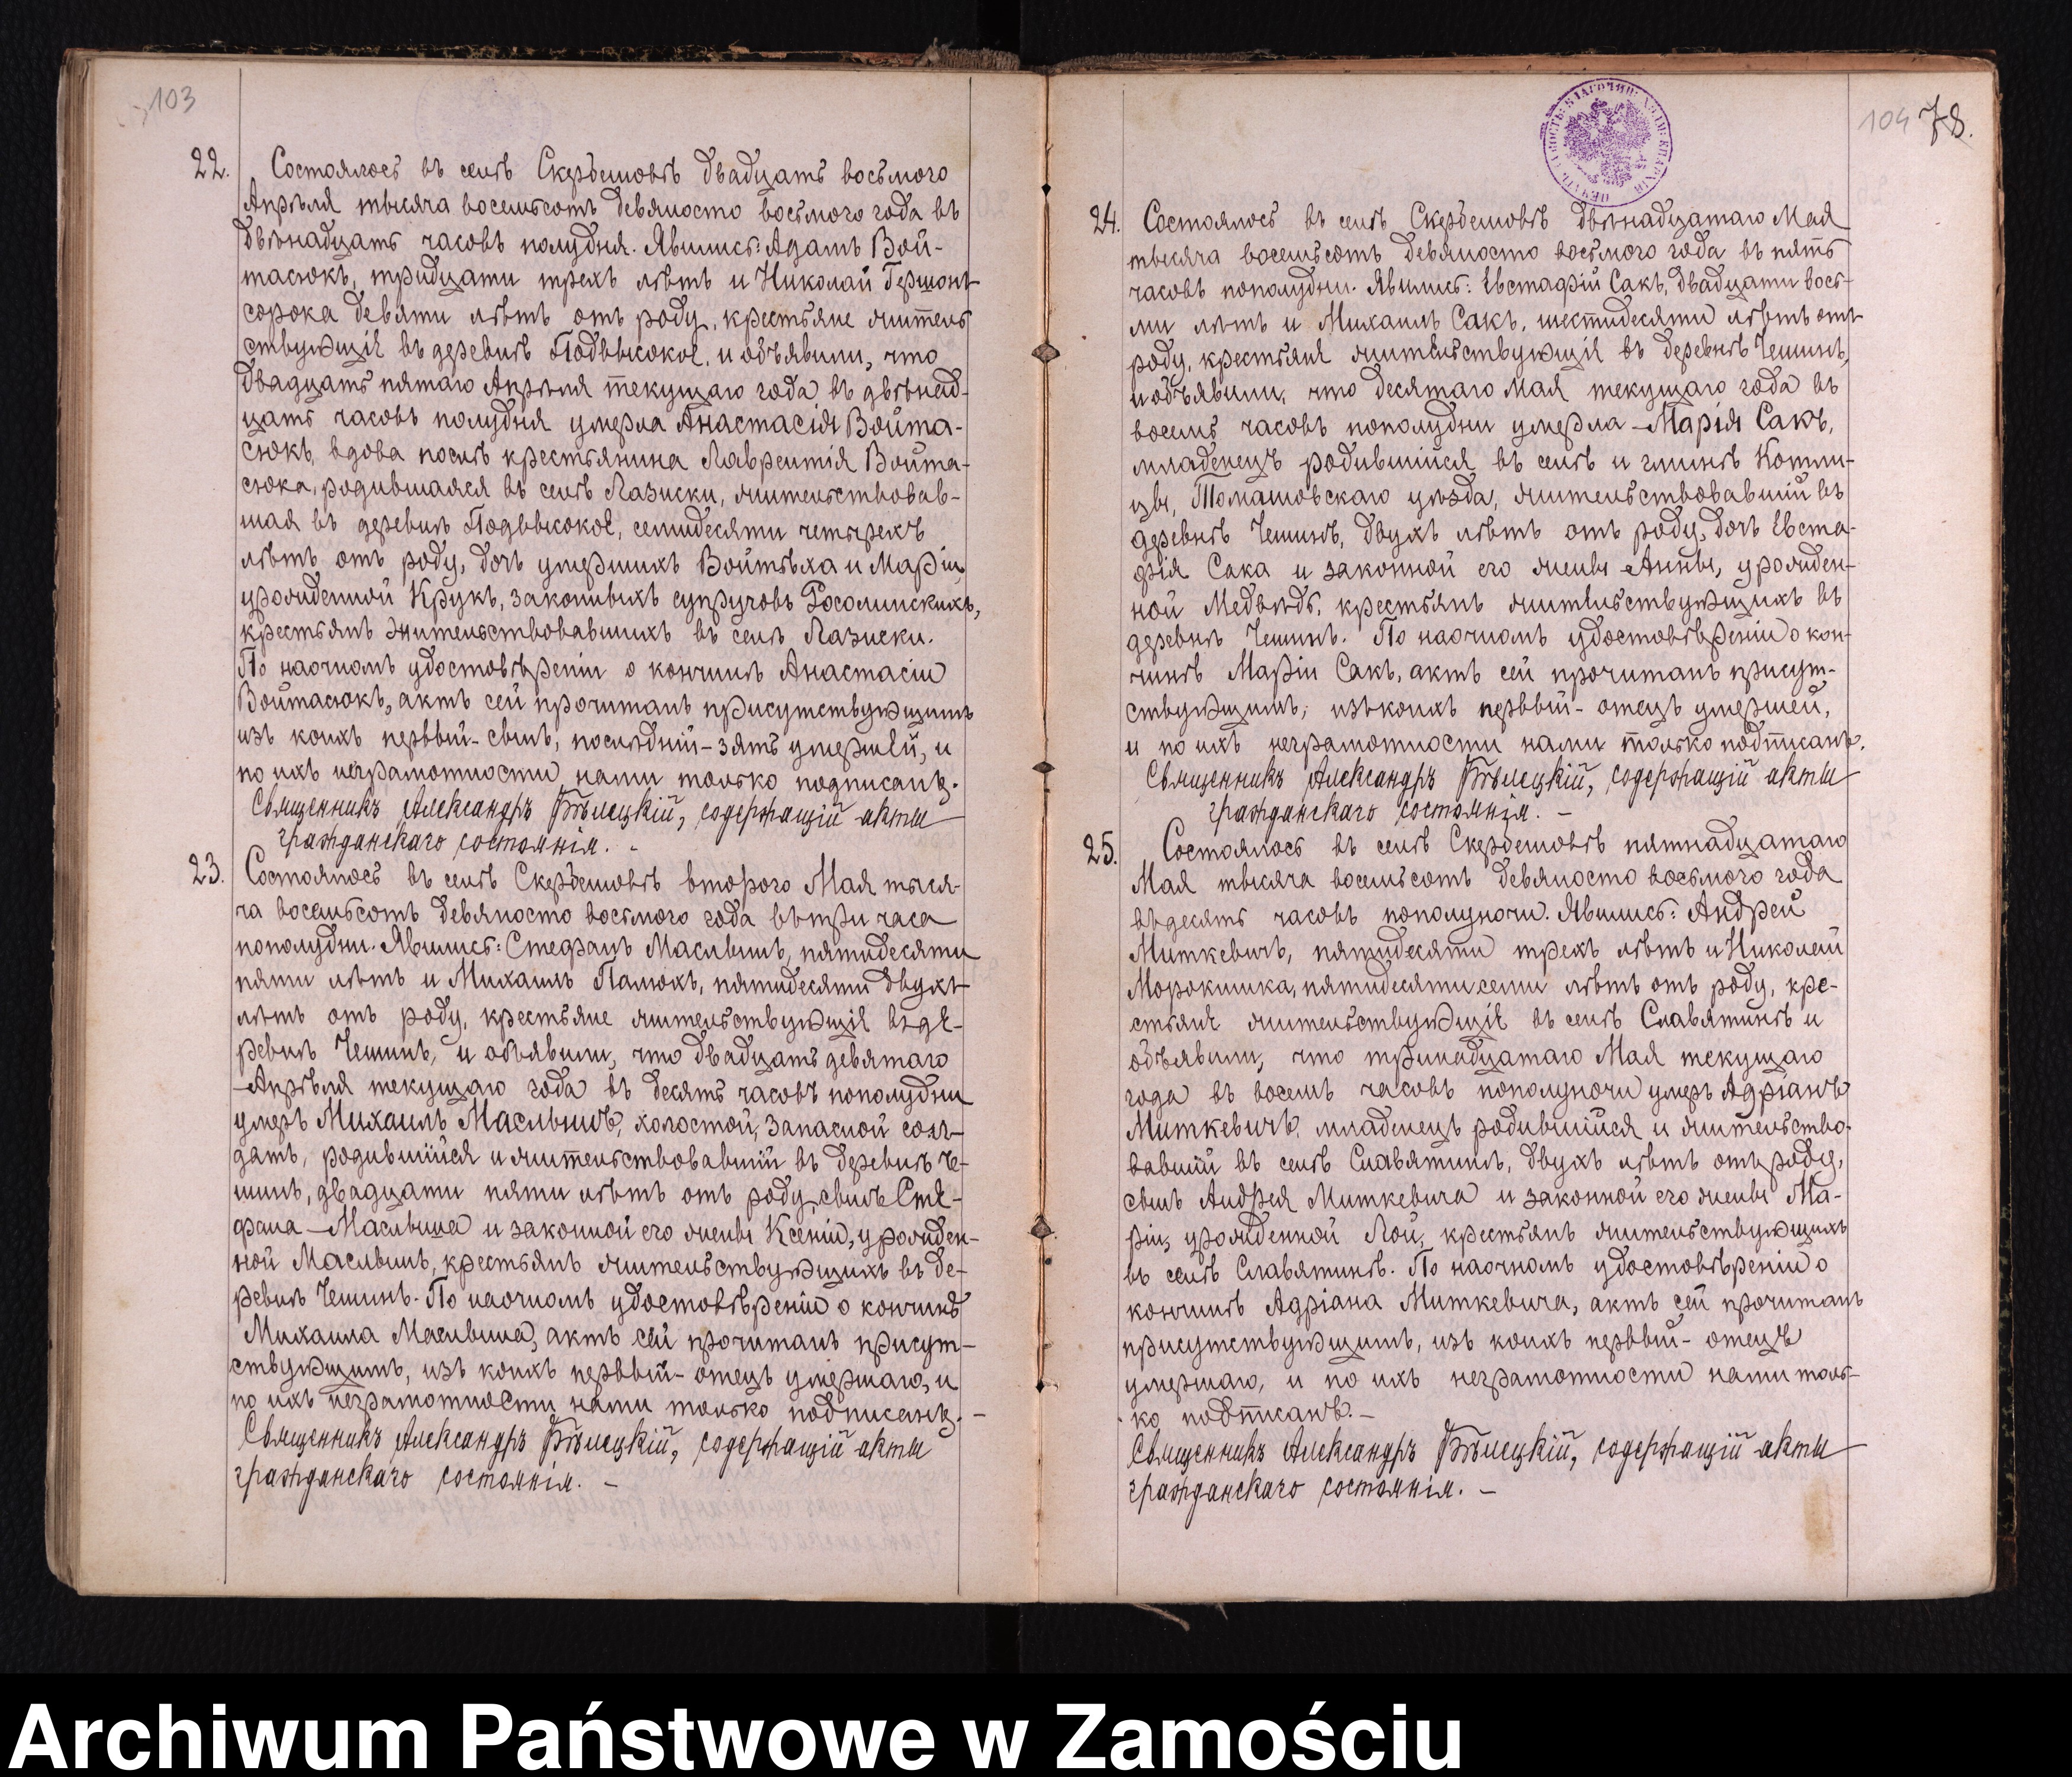 103
22. Состоялось въ селѣ Скербешовѣ двадцать восьмого
Апрѣля тысяча восемьсотъ девяносто восьмого года въ
двѣнадцать часовъ полудня. Явились: Адамъ Вой-
тасюкъ, тридцати трехъ лѣтъ и Николай Гершонъ
сорока девяти лѣтъ отъ роду, крестьяне житель
ствующіе въ деревнѣ Подвысокое, и объявили, что
двадцать пятаго Апрѣля текущаго года въ двѣнад-
цать часовъ полудня умерла Анастасія Войта-
сюкъ, вдова послѣ крестьянина Лаврентія Войта-
сюка, родившаяся въ селѣ Лазиски, жительствовав-
шая въ деревнѣ Подвысокое, семидесяти четырехъ
лѣтъ отъ роду, дочь умершихъ Войтѣха и Маріи,
урожденной Крукъ, законныхъ супруговъ Росолинскихъ,
крестьянъ жительствовавшихъ въ селѣ Лазиски.
По наочномъ удостовѣреніи о кончинѣ Анастасіи
Войтасюкъ, актъ сей прочитанъ присутствующимъ
изъ коихъ первый-сынъ, послѣдній-зять умершей, и
по ихъ неграмотности нами только подписанъ.
Священникъ Александръ Бѣлецкій, содержащій акты
гражданскаго состоянія. -
23. Состоялось въ селѣ Скербешовѣ второго Мая тыся-
ча восемьсотъ девяносто восьмого года въ три часа
пополудни. Явились: Стефанъ Маслышъ, пятидесяти
пяти лѣтъ и Михаилъ Палюхъ, пятидесяти двухъ
лѣтъ отъ роду, крестьяне жительствующіе въ де-
ревнѣ Чешинъ, и объявили, что двадцать девятаго
Апрѣля текущаго года въ десять часовъ пополудни
умеръ Михаилъ Маслышъ, холостой, запасной сол-
датъ, родившійся и жительствовавшій въ деревнѣ Че-
шинъ, двадцати пяти лѣтъ отъ роду, сынъ Сте-
фана Маслыша и законной его жены Ксеніи, урожден-
ной Маслышъ, крестьянъ жительствующихъ въ де-
ревнѣ Чешинъ. По наочномъ удостовѣреніи о кончинѣ
Михаила Маслыша, актъ сей прочитанъ присут-
ствующимъ, изъ коихъ первый-отецъ умершаго, и
по ихъ неграмотности нами только подписанъ. -
Священникъ Александръ Бѣлецкій, содержащій акты
гражданскаго состоянія. -
104 78.
24. Состоялось въ селѣ Скербешовѣ двѣнадцатаго Мая
тысяча восемьсотъ девяносто восьмого года въ пять
часовъ пополудни. Явились: Евстафій Сакъ, двадцати вось-
ми лѣтъ и Михаилъ Сакъ, шестидесяти лѣтъ отъ
роду, крестьяне жительствующіе въ деревнѣ Чешинъ,
и объявили, что десятаго Мая текущаго года въ
восемь часовъ пополудни умерла Марія Сакъ,
младенецъ родившійся въ селѣ и гминѣ Котли-
цы, Томашовскаго уѣзда, жительствовавшій въ
деревнѣ Чешинъ, двухъ лѣтъ отъ роду, дочь Евста-
фія Сака и законной его жены Анны, урожден-
ной Медвѣдь, крестьянъ жительствующихъ въ
деревнѣ Чешинъ. По наочномъ удостовѣреніи о кон-
чинѣ Маріи Сакъ, актъ сей прочитанъ присут-
ствующимъ, изъ коихъ первый-отецъ умершей,
и по ихъ неграмотности нами только подписанъ.
Священникъ Александръ Бѣлецкій, содержащій акты
гражданскаго состоянія. -
25. Состоялось въ селѣ Скербешовѣ пятнадцатаго
Мая тысяча восемьсотъ девяносто восьмого года
въ десять часовъ пополуночи. Явились: Андрей
Миткевичъ, пятидесяти трехъ лѣтъ и Николай
Морокишка, пятидесяти семи лѣтъ отъ роду, кре-
стьяне жительствующіе въ селѣ Славятинѣ и
объявили, что тринадцатаго Мая текущаго
года въ восемь часовъ пополуночи умеръ Адріанъ
Миткевичъ, младенецъ родившійся и жительство-
вавшій въ селѣ Славятинъ, двухъ лѣтъ отъ роду,
сынъ Андрея Миткевича и законной его жены Ма-
ріи, урожденной Лой, крестьянъ жительствующихъ
въ селѣ Славятинѣ. По наочномъ удостовѣреніи о
кончинѣ Адріана Миткевича, актъ сей прочитанъ
присутствующимъ, изъ коихъ первый-отецъ
умершаго, и по ихъ неграмотности нами толь-
ко подписанъ. -
Священникъ Александръ Бѣлецкій, содержащій акты
гражданскаго состоянія. -
Archiwum Państwowe w Zamościu